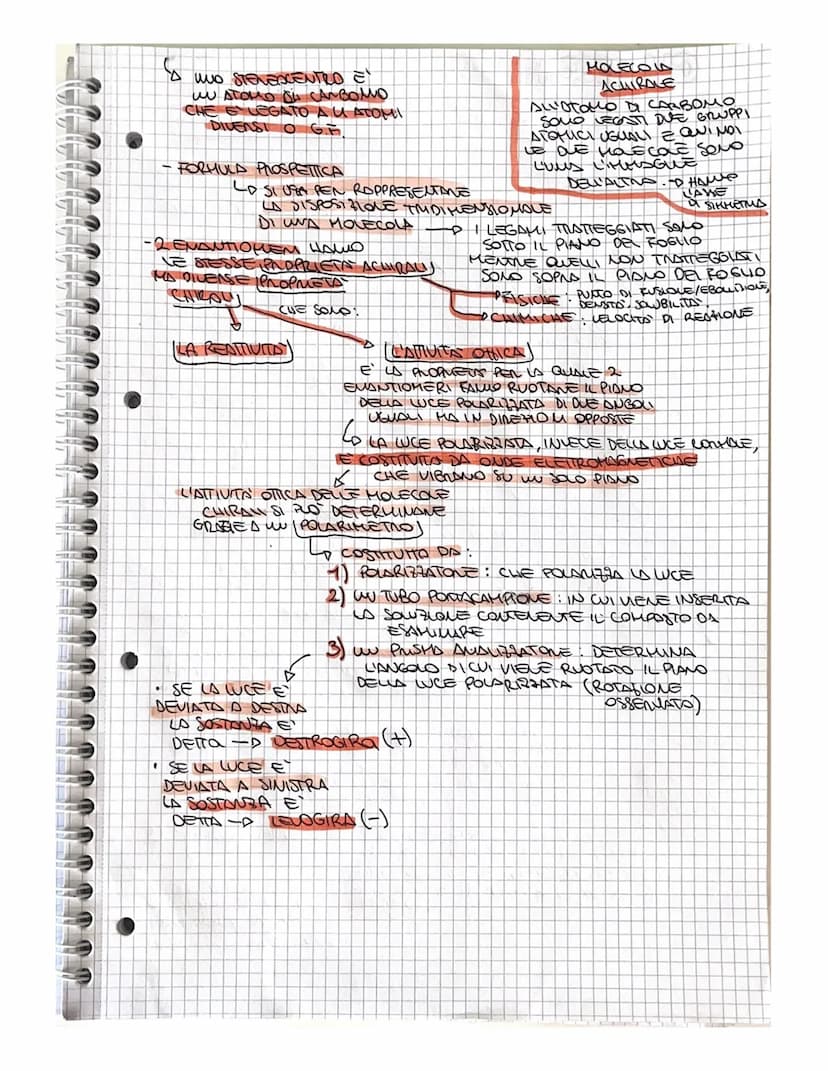 ↳ UNO STEREOCENTRO E'
UN ATOMO DI CARBONIO
CHE E' LEGATO A 4 ATOMI
DIVERSI O G.F.
MOLECOLA
ACHIRALE
ALL'ATOMO DI CARBONIO
SONO LEGATI DUE GRUPPI
ATOMICI UGUALI E QUINDI
LE DUE MOLECOLE SONO
L'UNA L'IMMAGINE
DELL'ALTRA. → HANNO
L'ASSE
DI SIMMETRIA
- FORMULA PROSPETTICA
↳ SI USA PER RAPPRESENTARE
LA DISPOSIZIONE TRIDIMENSIONALE
DI UNA MOLECOLA → I LEGAMI TRATTEGGIATI SONO
SOTTO IL PIANO DEL FOGLIO
MENTRE QUELLI NON TRATTEGGIATI
SONO SOPRA IL PIANO DEL FOGLIO
- 2 ENANTIOMERI HANNO
LE STESSE PROPRIETA' ACHIRALI
MA DIVERSE PROPRIETA'
CHIRALI
→ FISICHE: PUNTO DI FUSIONE/EBOLLIZIONE,
DENSITA', SOLUBILITA'.
→ CHIMICHE: VELOCITA' DI REAZIONE
CHE SONO:
LA REATTIVITA'
L'ATTIVITA' OTTICA
E' LA PROPRIETA' PER LA QUALE 2
ENANTIOMERI FANNO RUOTARE IL PIANO
DELLA LUCE POLARIZZATA DI DUE ANGOLI
UGUALI MA IN DIREZIONI OPPOSTE
↳ LA LUCE POLARIZZATA, INVECE DELLA LUCE NORMALE,
E' COSTITUITA DA ONDE ELETTROMAGNETICHE
CHE VIBRANO SU UN SOLO PIANO
L'ATTIVITA' OTTICA DELLE MOLECOLE
CHIRALI SI PUO' DETERMINARE
GRAZIE A UN POLARIMETRO
↳ COSTITUITO DA:
1) POLARIZZATORE: CHE POLARIZZA LA LUCE
2) UN TUBO PORTACAMPIONE: IN CUI VIENE INSERITA
LA SOLUZIONE CONTENENTE IL COMPOSTO DA
ESAMINARE
3) UN PRISMA ANALIZZATORE: DETERMINA
L'ANGOLO DI CUI VIENE RUOTATO IL PIANO
DELLA LUCE POLARIZZATA (ROTAZIONE
OSSERVATA)
• SE LA LUCE E'
DEVIATA A DESTRA
LA SOSTANZA E'
DETTA → DESTROGIRA (+)
• SE LA LUCE E'
DEVIATA A SINISTRA
LA SOSTANZA E'
DETTA → LEVOGIRA (-)